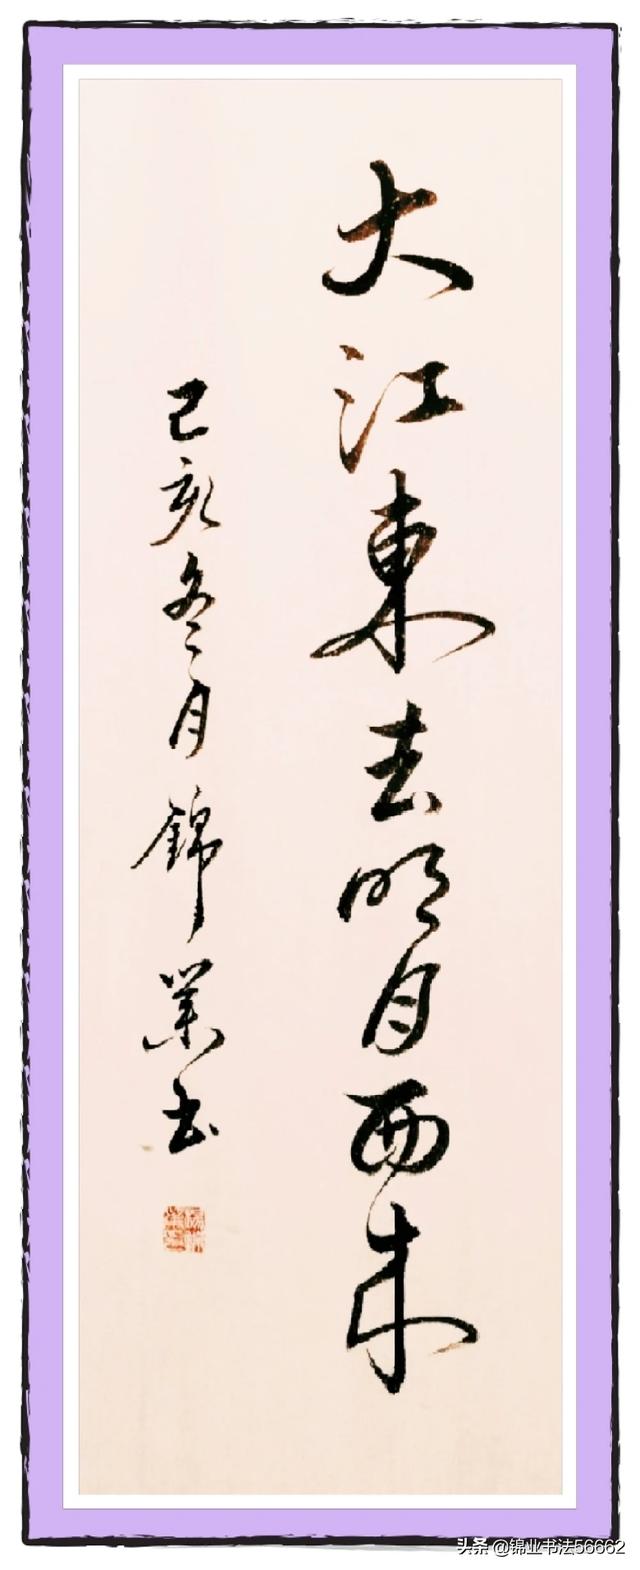 大江東去明月西来
己亥冬月錦業书
头条 @锦业书法56662